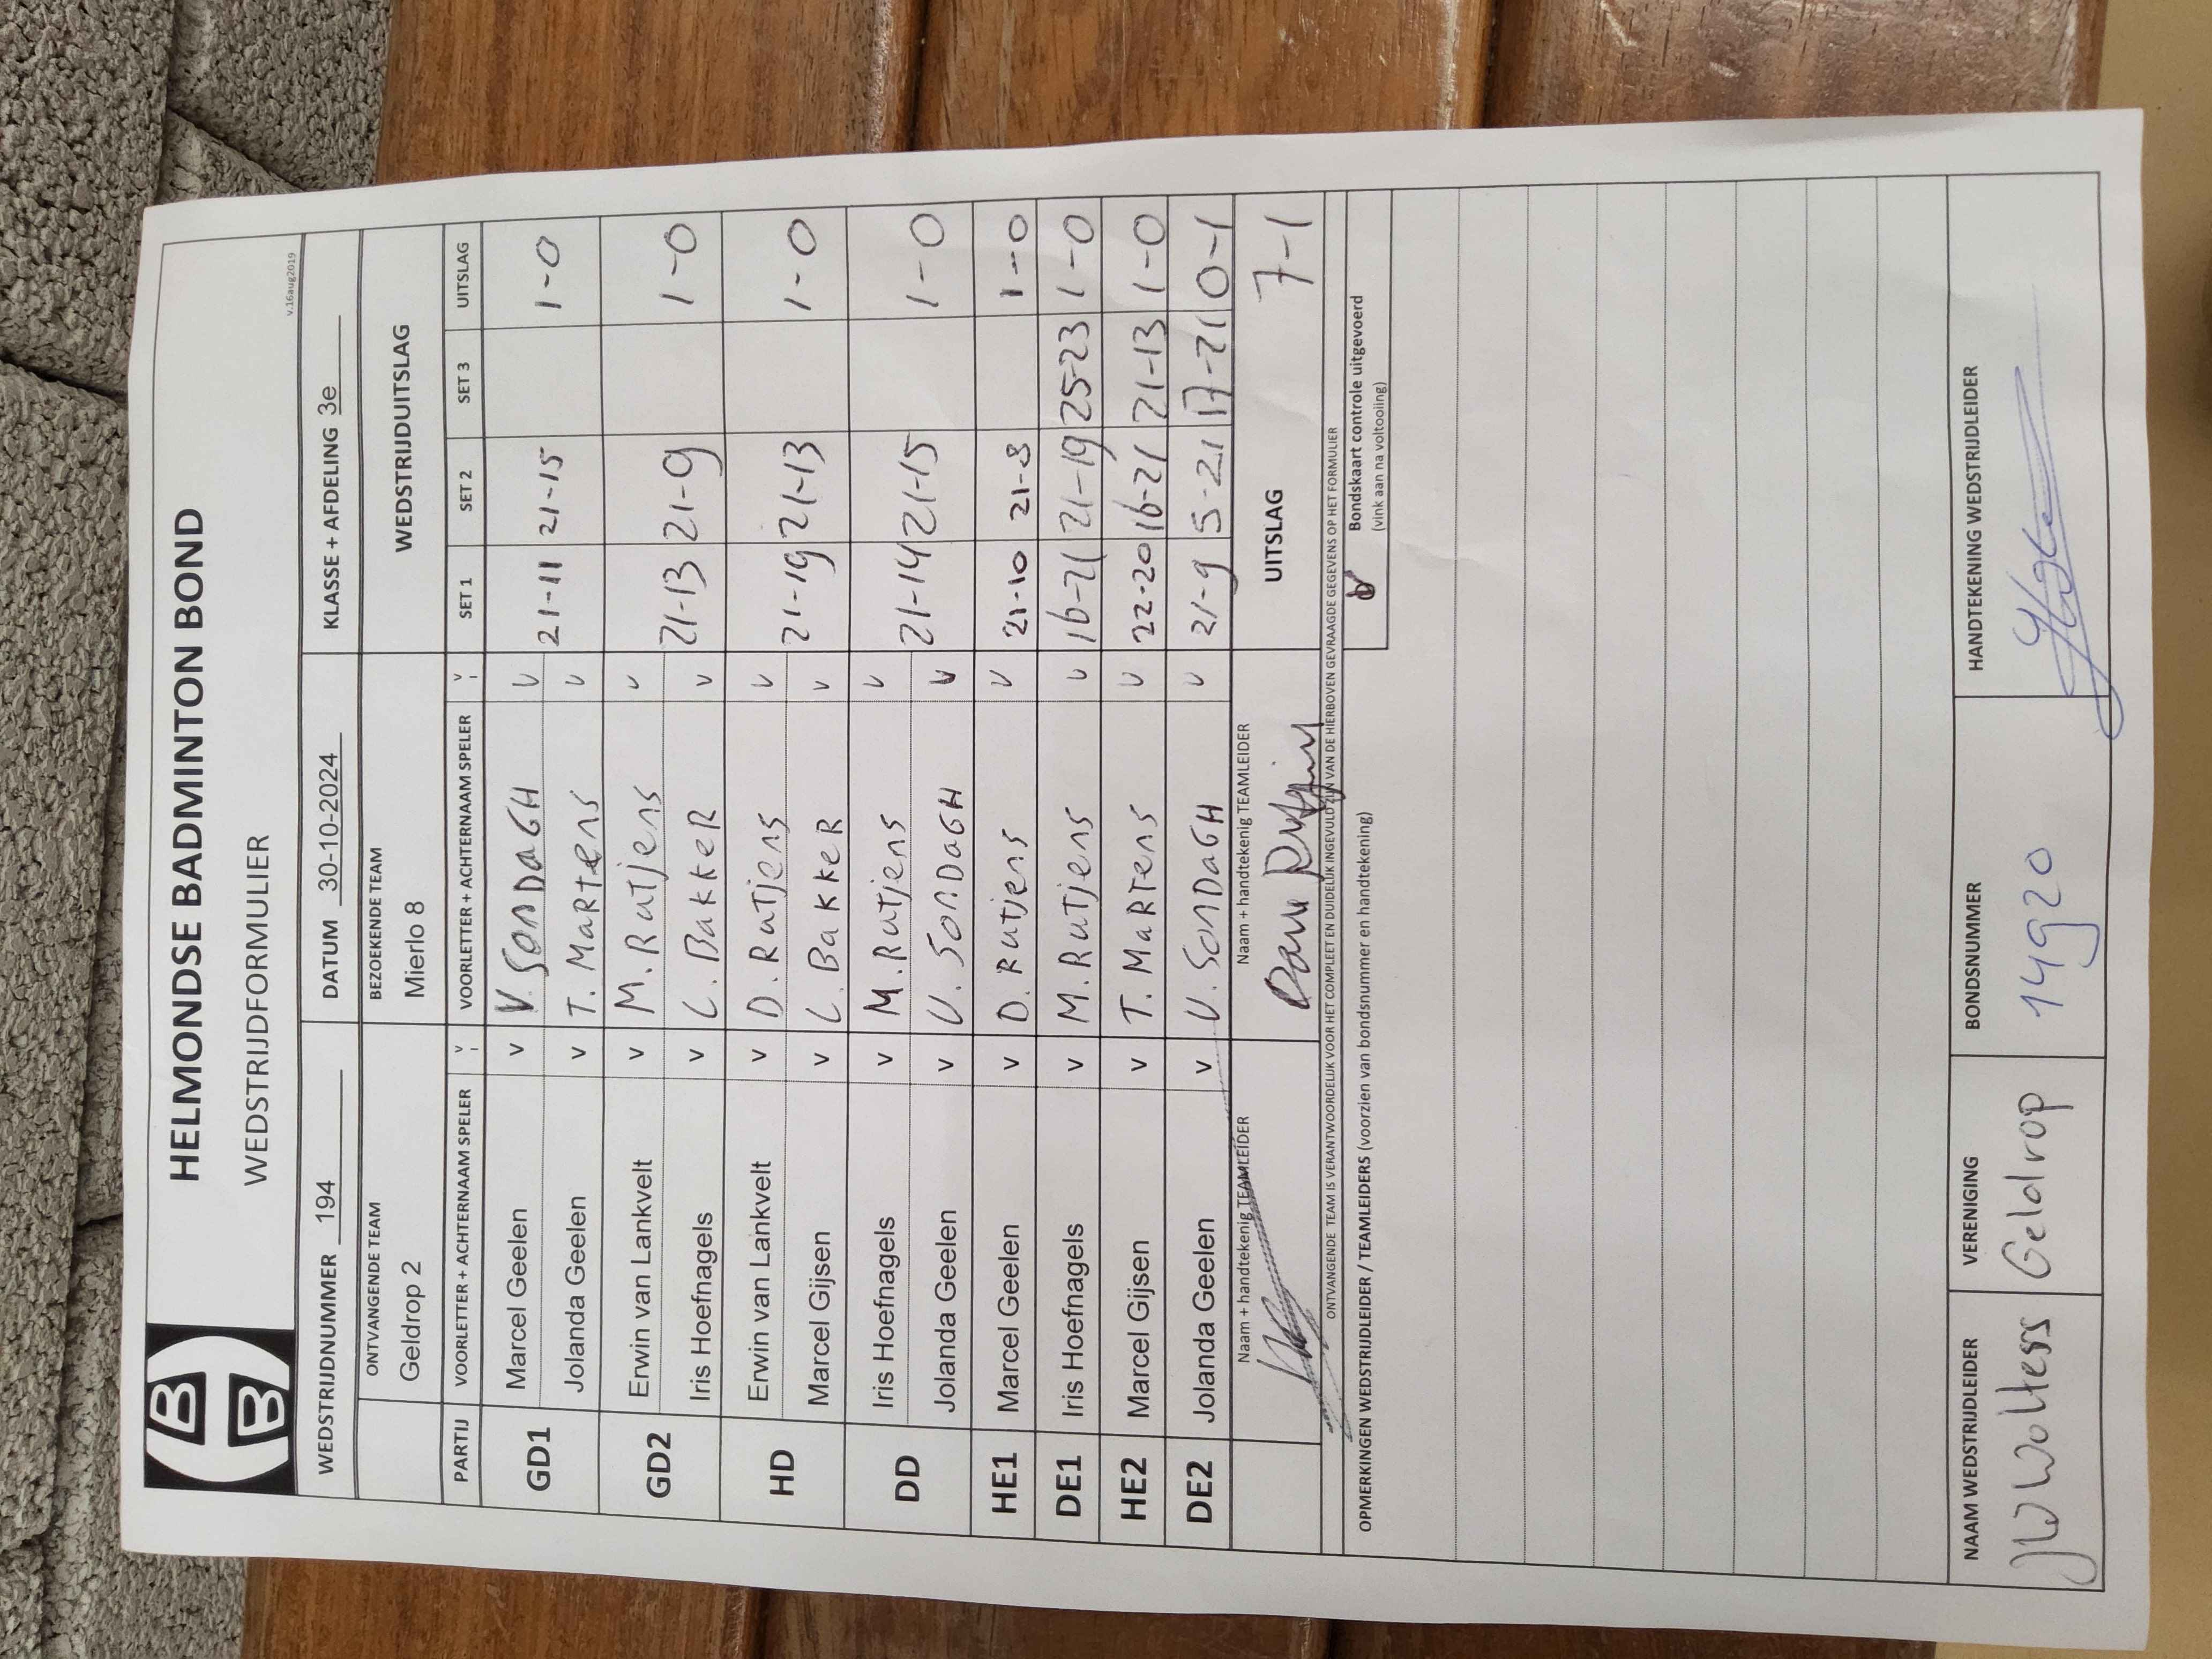 HELMONDSE BADMINTON BOND
WEDSTRIJDFORMULIER
v.16aug2019
WEDSTRIJDNUMMER 194 DATUM 30-10-2024 KLASSE + AFDELING 3e
ONTVANGENDE TEAM BEZOEKENDE TEAM WEDSTRIJDUITSLAG
Geldrop 2 Mierlo 8
PARTIJ VOORLETTER + ACHTERNAAM SPELER V VOORLETTER + ACHTERNAAM SPELER V SET 1 SET 2 SET 3 UITSLAG
GD1 Marcel Geelen v V. SONDAGH v 21-11 21-15 1-0
Jolanda Geelen v T. MARTENS v
GD2 Erwin van Lankvelt v M. RUTJENS v 21-13 21-9 1-0
Iris Hoefnagels v L. BAKKER v
HD Erwin van Lankvelt v D. RUTJENS v 21-19 21-13 1-0
Marcel Gijsen v L. BAKKER v
DD Iris Hoefnagels v M. RUTJENS v 21-14 21-15 1-0
Jolanda Geelen v V. SONDAGH v
HE1 Marcel Geelen v D. RUTJENS v 21-10 21-8 1-0
DE1 Iris Hoefnagels v M. RUTJENS v 16-21 21-19 25-23 1-0
HE2 Marcel Gijsen v T. MARTENS v 22-20 16-21 21-13 1-0
DE2 Jolanda Geelen v V. SONDAGH v 21-9 5-21 17-21 0-1
Naam + handtekenig TEAMLEIDER Naam + handtekenig TEAMLEIDER UITSLAG 7-1
ONTVANGENDE TEAM IS VERANTWOORDELIJK VOOR HET COMPLEET EN DUIDELIJK INGEVULD ZIJN VAN DE HIERBOVEN GEVRAAGDE GEGEVENS OP HET FORMULIER
OPMERKINGEN WEDSTRIJDLEIDER / TEAMLEIDERS (voorzien van bondsnummer en handtekening)
Bondskaart controle uitgevoerd
(vink aan na voltooiing)
NAAM WEDSTRIJDLEIDER VERENIGING BONDSNUMMER HANDTEKENING WEDSTRIJDLEIDER
JW Wolters Geldrop 14920